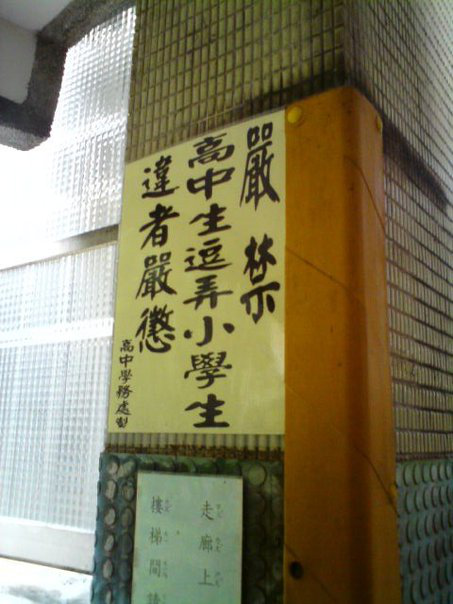 嚴禁
高中生逗弄小學生
違者嚴懲
高中學務處製
走廊上
樓梯間請